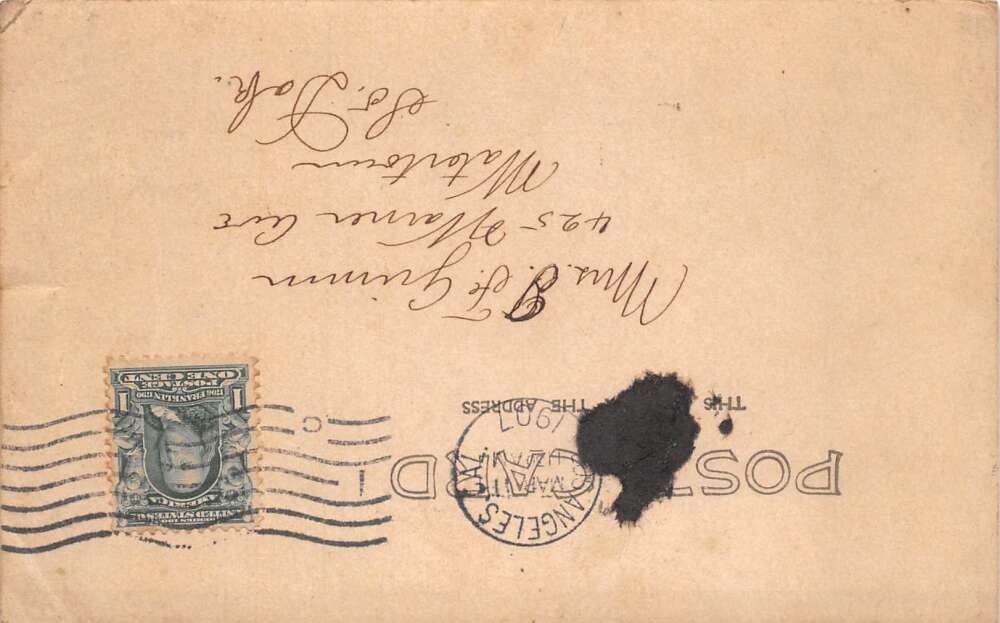 POST CARD
THIS THE ADDRESS
ANGELES, CAL.
MAR
1907
SERIES 1902
UNITED STATES OF
AMERICA
1706 FRANKLIN 1790
1 POSTAGE 1
ONE CENT
Mrs. G. F. Grimm
425 Warner Ave
Watertown
So. Dak.